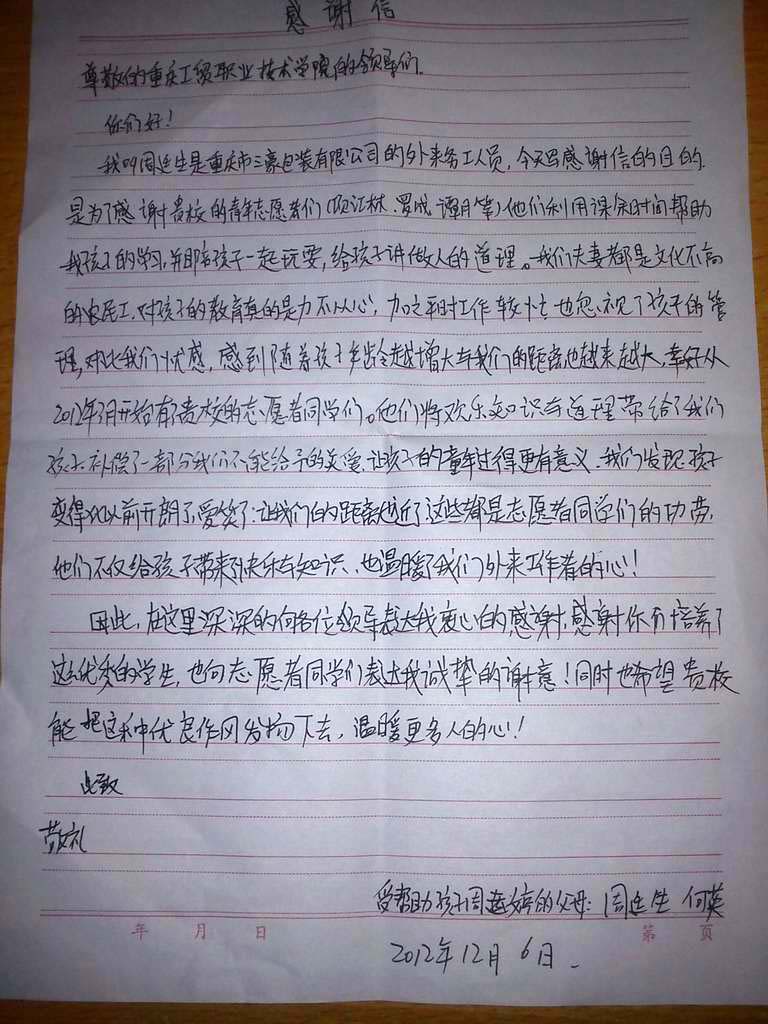 感谢信
尊敬的重庆工贸职业技术学院的领导们.
你们好!
我叫周廷生是重庆市三豪包装有限公司的外来务工人员,今天写感谢信的目的
是为了感谢贵校的青年志愿者们(项江林、罗成、谭月等)他们利用课余时间帮助
我孩子的学习,并陪孩子一起玩耍,给孩子讲做人的道理。我们夫妻都是文化不高
的农民工,对孩子的教育真的是力不从心,加之平时工作较忙也忽视了孩子的管
理,对比我们忧感,感到随着孩子年龄越增大与我们的距离也越来越大,幸好从
2012年3月开始有了贵校的志愿者同学们。他们将欢乐知识与道理带给了我们
孩子.补偿了一部分我们不能给予的关爱,让孩子的童年过得更有意义.我们发现孩子
变得比以前开朗了,爱笑了.让我们的距离也近了这些都是志愿者同学们的功劳,
他们不仅给孩子带来了快乐与知识、也温暖了我们外来工作者的心!
因此,在这里深深的向各位领导表达我衷心的感谢,感谢你们培养了
这么优秀的学生,也向志愿者同学们表达我诚挚的谢意!同时也希望贵校
能把这种优良作风发扬下去,温暖更多人的心!
此致
敬礼
受帮助孩子周 婷的父母:周廷生 何英
年 月 日 第 页
2012年12月6日.